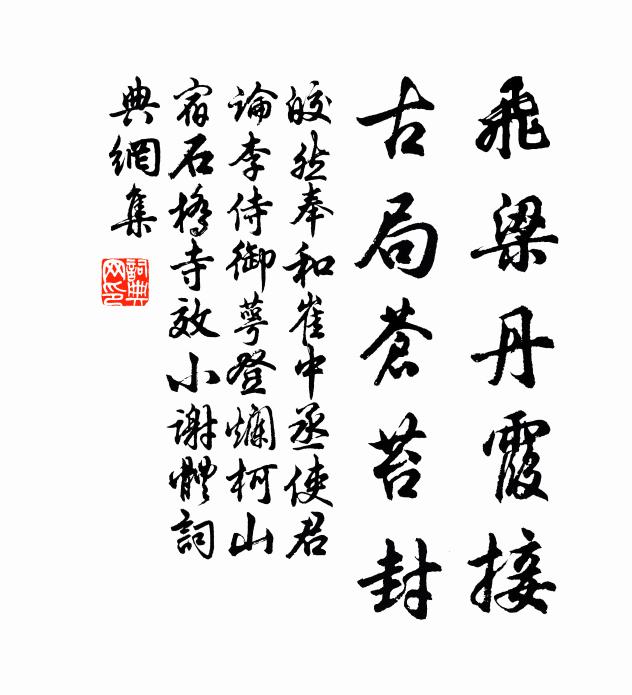 飛梁丹霞接
古局蒼苔封
皎然奉和崔中丞使君
論李侍御萼登爛柯山
宿石橋寺效小謝體詞
典網集
詞典網印